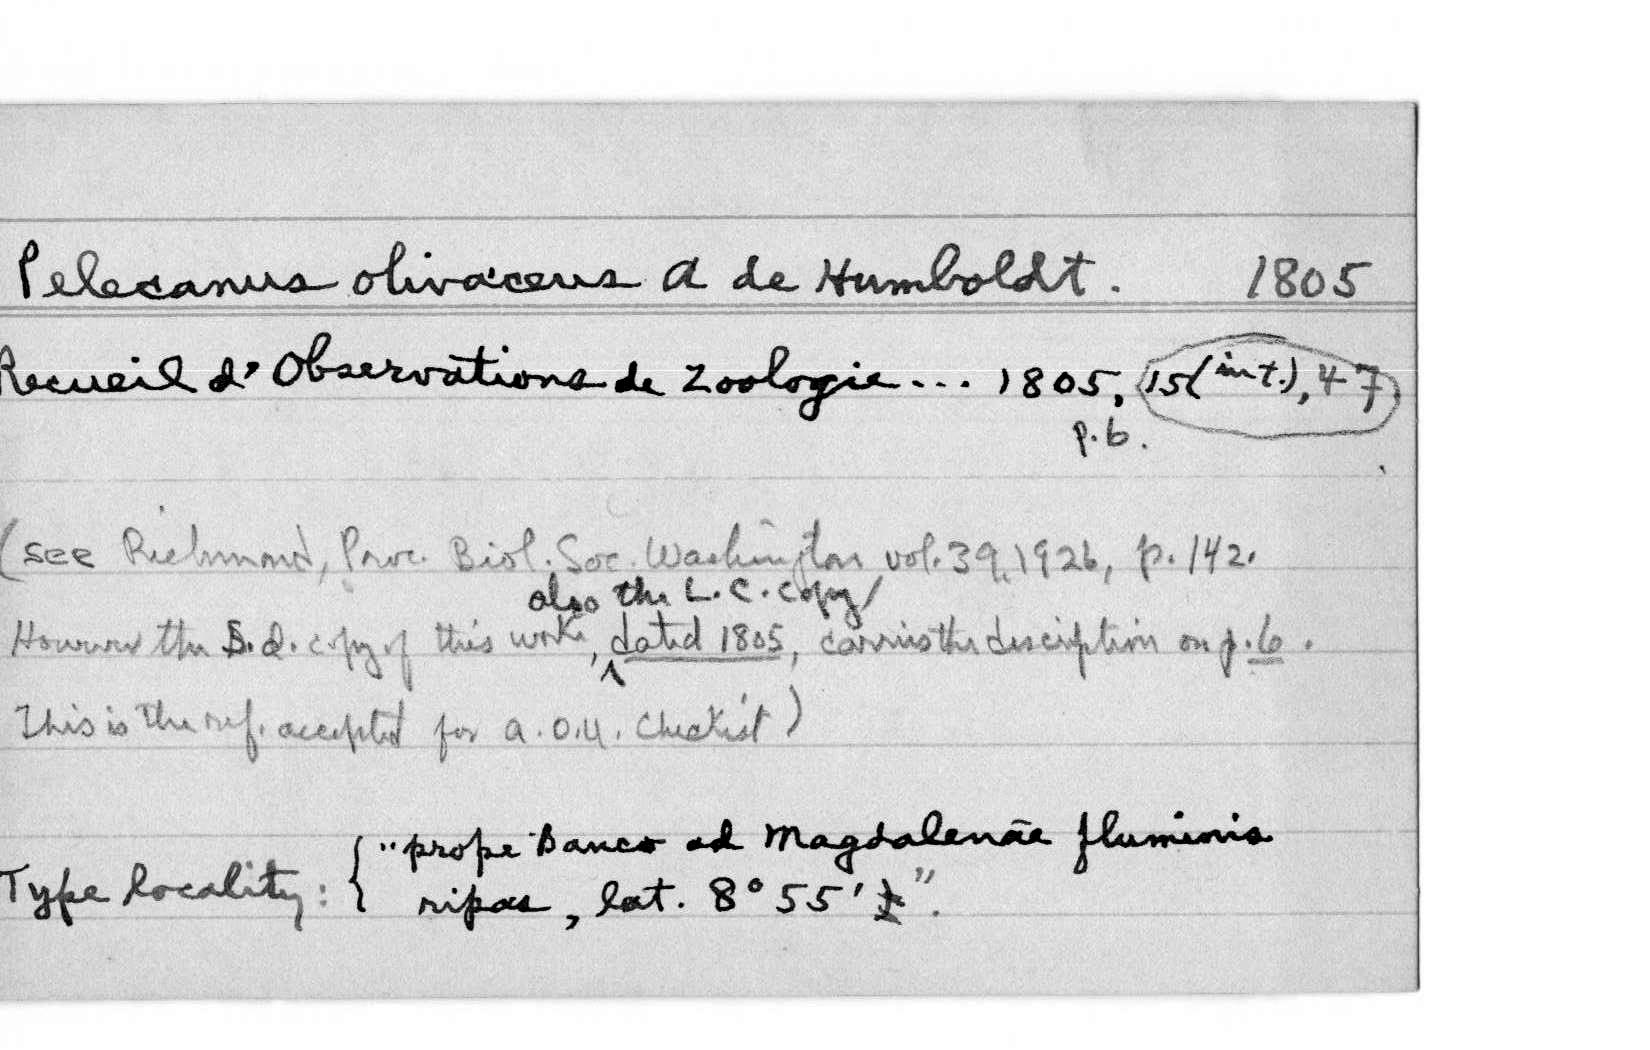 Pelecanus olivaceus A de Humboldt. 1805
Recueil d'Observations de Zoologie... 1805, 15(int.), 47
p.6.
(see Richmond, Proc. Biol. Soc. Washington vol. 39, 1926, p. 142.
also the L.C. copy
However the S.I. copy of this work, dated 1805, carries the description on p.6.
This is the ref. accepted for A.O.U. Checklist)
Type locality: { "prope Banco ad Magdalenae fluminis
ripas, lat. 8° 55'".